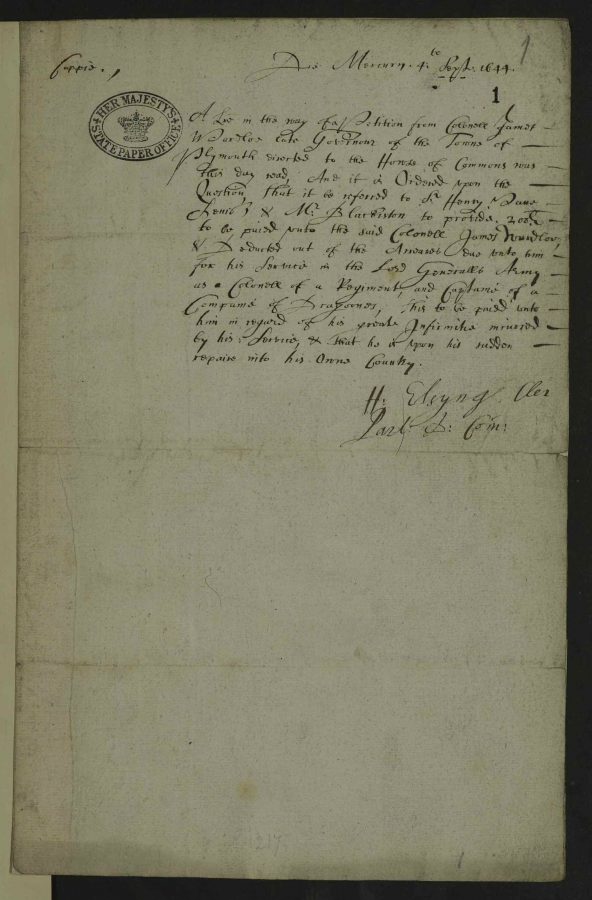 Coppie.
Die Mercurij. 4.to Septe. 1644.
1
1
HER MAJESTY'S STATE PAPER OFFICE
A Lre in the way of a Petition from Colonell James
Wardloe late Governour of the Towne of
Plymouth directed to the House of Commons was
this day read, And it is Ordered upon the
Question, that it be referred to Sr. Henry Vane
Senior & Mr. Blackiston to provide. 200li
to be paied unto the said Colonell James Wardlow,
& Deducted out of the Arreares due unto him
for his Service in the Lord Generalls Army
as a Colonell of a Regiment, and Captaine of a
Companie of Dragoones, this to be paied unto
him in regard of his greate Infirmitie incurred
by his Service, & that he is upon his sudden
repaire into his Owne Country.
H: Elsyng. Cler
Parl. D: Com:
217